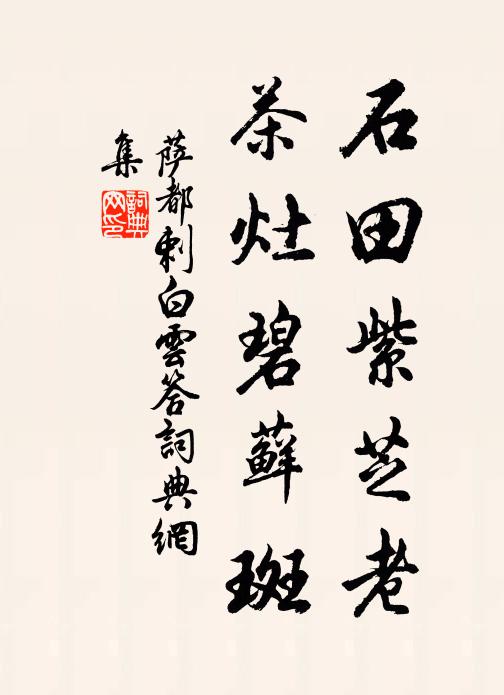 石田紫芝老
茶灶碧蘚斑
萨都剌白雲答詞典網
集
詞典
网印